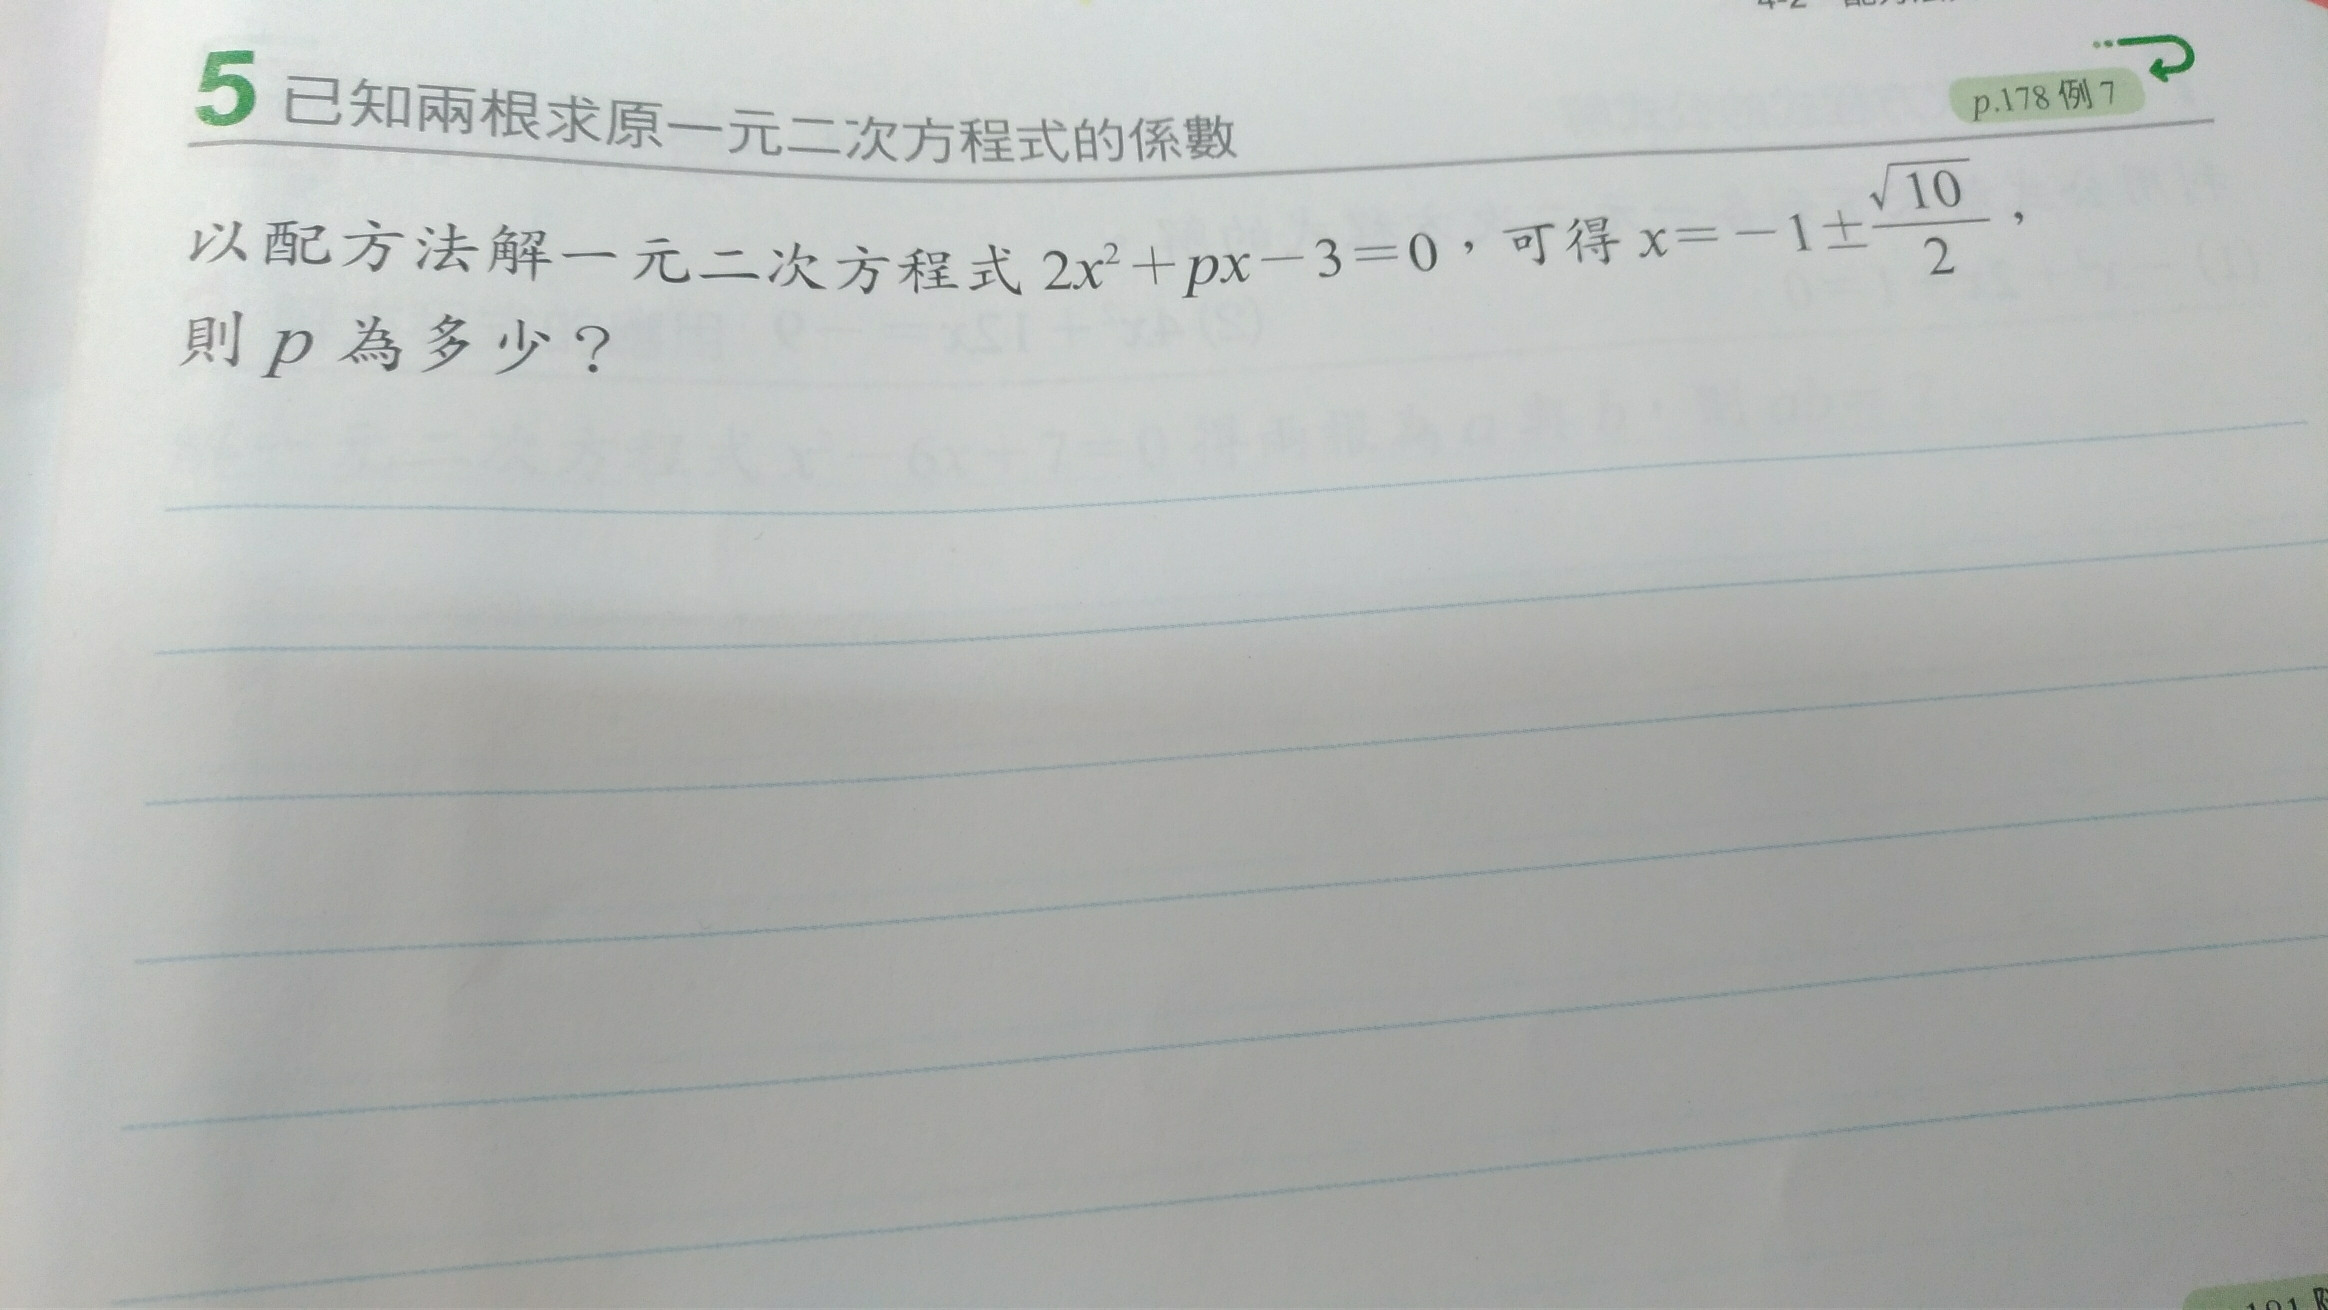 5 已知兩根求原一元二次方程式的係數
p.178 例 7
以配方法解一元二次方程式 2x²+px−3=0，可得 x=−1±√10/2，
則 p 為多少？